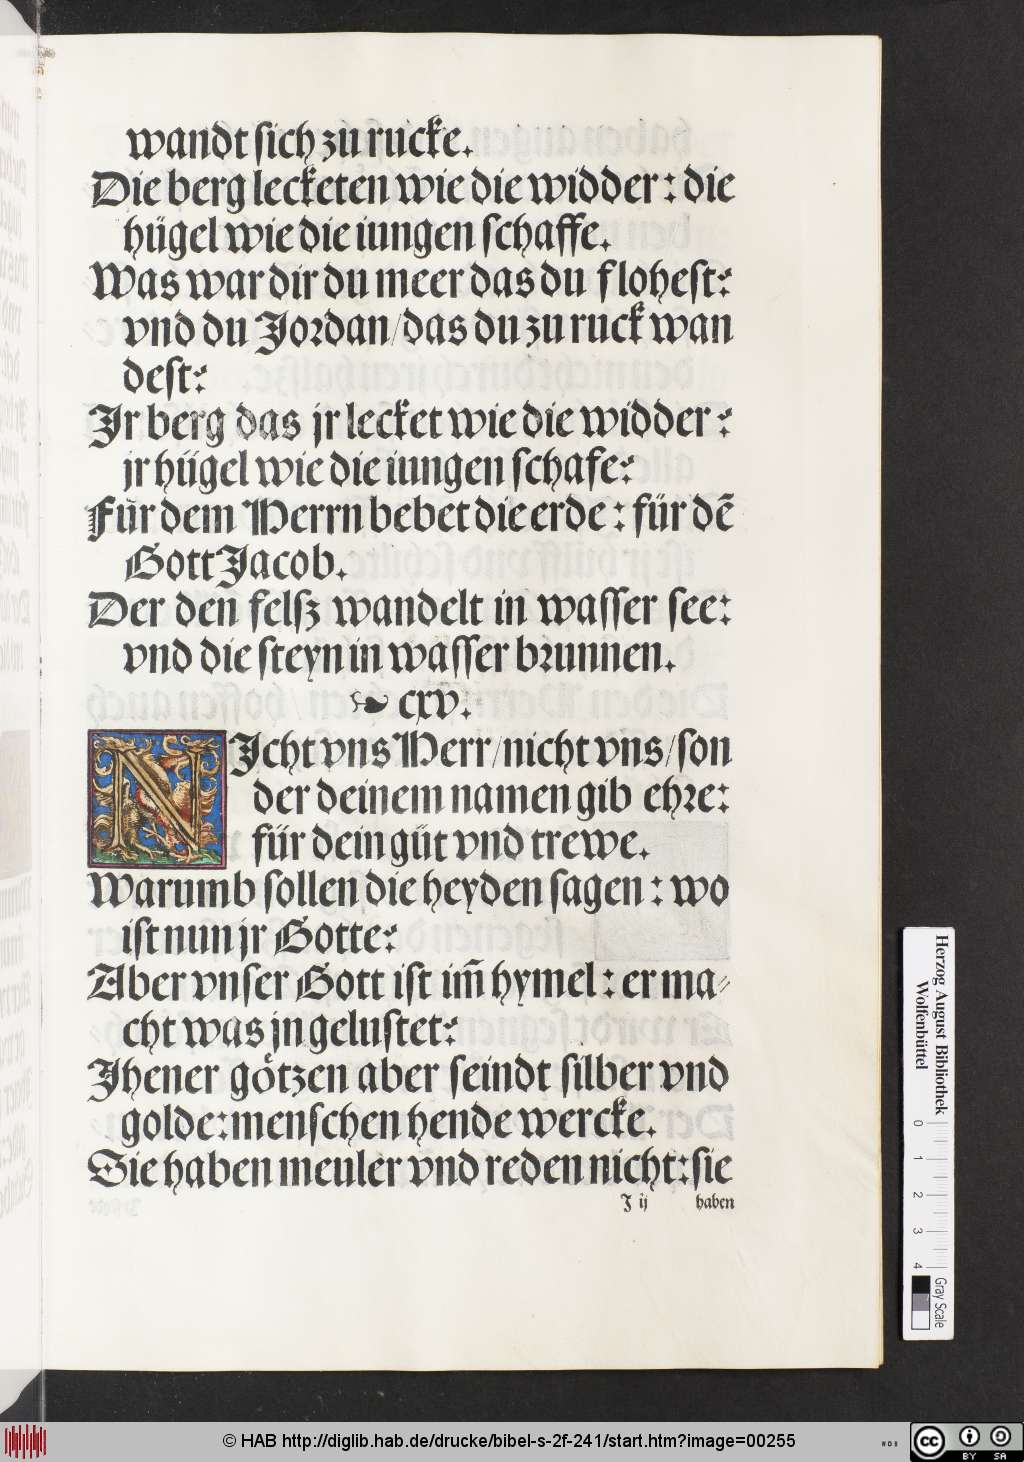 wandt sich zu rucke.
Die berg lecketen wie die widder : die
hügel wie die iungen schaffe.
Was war dir du meer das du flohest:
vnd du Jordan/das du zu ruck wan
dest:
Jr berg das jr lecket wie die widder :
jr hügel wie die iungen schafe:
Für dem Herrn bebet die erde : für dẽ
Gott Jacob.
Der den felsz wandelt in wasser see:
vnd die steyn in wasser brunnen.
❧ cxv.
NJcht vns Herr/nicht vns/son
der deinem namen gib ehre:
für dein güt vnd trewe.
Warumb sollen die heyden sagen : wo
ist nun jr Gotte:
Aber vnser Gott ist im̃ hymel : er ma⸗
cht was jn gelustet:
Jhener götzen aber seindt silber vnd
golde:menschen hende wercke.
Sie haben meuler vnd reden nicht:sie
J ij haben
Herzog August Bibliothek
Wolfenbüttel
0 1 2 3 4
Gray Scale
© HAB http://diglib.hab.de/drucke/bibel-s-2f-241/start.htm?image=00255
WDB
cc BY SA